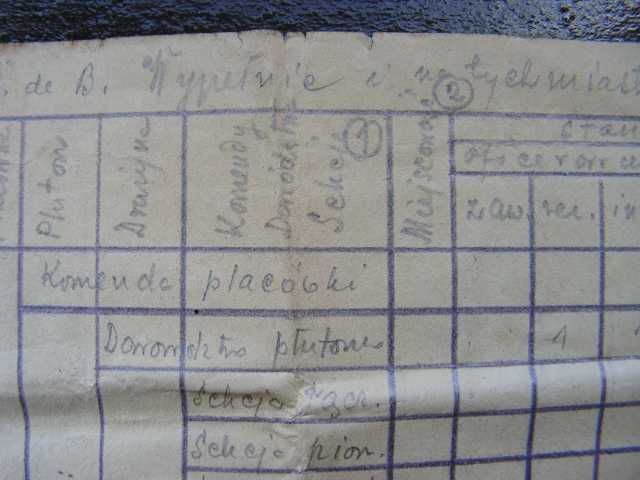 de B. Wypełnić i natychmiast
Pluton
Drużyna
Komendy
Dowództwo
Sekcje ①
Miejscowość ②
Stan
Oficerowie
zaw. rez. in
Komenda placówki
Dowództwo plutonu 1
Sekcja łącz.
Sekcja pion.